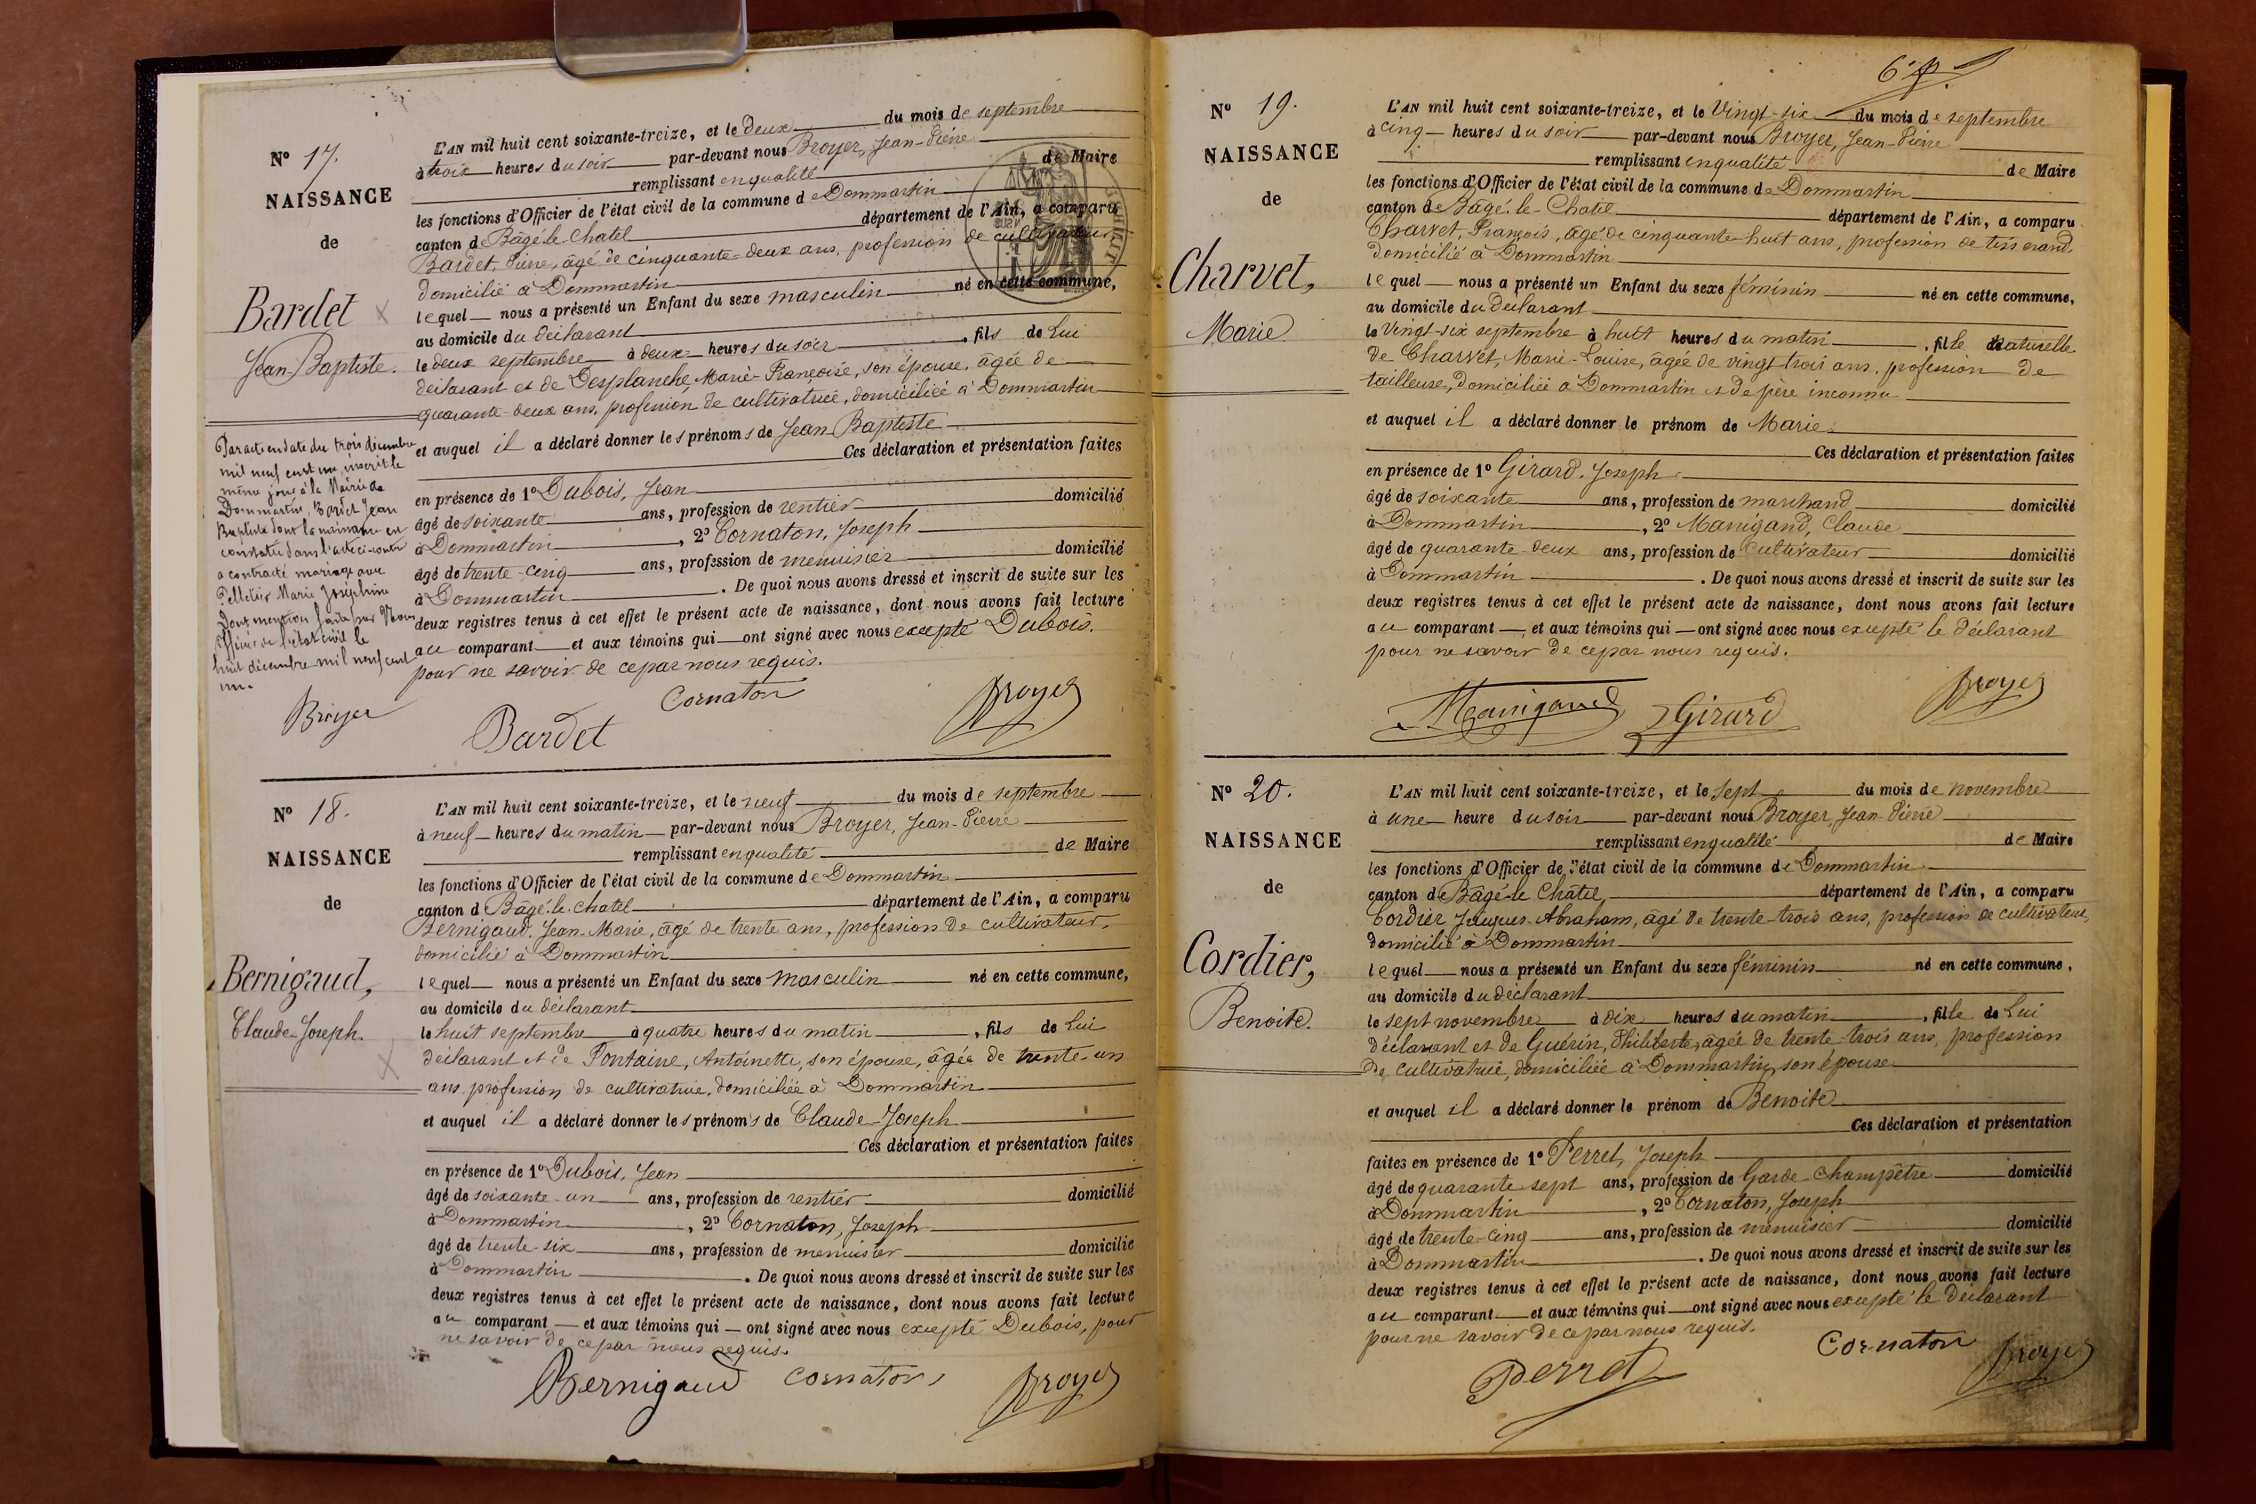 Nº 17.
NAISSANCE
de
Bardet
Jean-Baptiste.
L'AN mil huit cent soixante-treize, et le deux du mois de septembre
à trois heures du soir par-devant nous Broyer, Jean-Pierre
remplissant en qualité de Maire
les fonctions d'Officier de l'état civil de la commune de Dommartin
canton de Bâgé-le-Chatel département de l'Ain, a comparu
Bardet, Pierre, âgé de cinquante-deux ans, profession de cultivateur
domicilié à Dommartin
lequel nous a présenté un Enfant du sexe masculin né en cette commune,
au domicile du déclarant
le deux septembre à deux heures du soir, fils de Lui
déclarant et de Desplanche Marie-Françoise, son épouse, âgée de
quarante-deux ans, profession de cultivatrice, domiciliée à Dommartin
et auquel il a déclaré donner les prénoms de Jean-Baptiste
Ces déclaration et présentation faites
en présence de 1º Dubois, Jean
âgé de soixante ans, profession de rentier domicilié
à Dommartin, 2º Cornaton, Joseph
âgé de trente-cinq ans, profession de menuisier domicilié
à Dommartin. De quoi nous avons dressé et inscrit de suite sur les
deux registres tenus à cet effet le présent acte de naissance, dont nous avons fait lecture
au comparant et aux témoins qui ont signé avec nous excepté Dubois.
pour ne savoir de ce par nous requis.
Par acte en date du trois décembre
mil neuf cent un, inscrit le
même jour à la Mairie de
Dommartin, Bardet Jean
Baptiste dont la naissance est
constatée dans l'acte ci-contre
a contracté mariage avec
Pelletier Marie Joséphine
Dont mention faite par Nous
Officier de l'état civil le
huit décembre mil neuf cent
un.
Broyer
Bardet
Cornaton
Broyer
Nº 18.
NAISSANCE
de
Bernigaud,
Claude-Joseph.
L'AN mil huit cent soixante-treize, et le neuf du mois de septembre
à neuf heures du matin par-devant nous Broyer, Jean-Pierre
remplissant en qualité de Maire
les fonctions d'Officier de l'état civil de la commune de Dommartin
canton d Bâgé-le-Chatel département de l'Ain, a comparu
Bernigaud, Jean-Marie, âgé de trente ans, profession de cultivateur,
domicilié à Dommartin
lequel nous a présenté un Enfant du sexe masculin né en cette commune,
au domicile du déclarant
le huit septembre à quatre heures du matin, fils de Lui
déclarant et de Fontaine, Antoinette, son épouse, âgée de trente-un
ans, profession de cultivatrice, domiciliée à Dommartin
et auquel il a déclaré donner les prénoms de Claude-Joseph
Ces déclaration et présentation faites
en présence de 1º Dubois, Jean
âgé de soixante-un ans, profession de rentier domicilié
à Dommartin, 2º Cornaton, Joseph
âgé de trente-six ans, profession de menuisier domicilié
à Dommartin. De quoi nous avons dressé et inscrit de suite sur les
deux registres tenus à cet effet le présent acte de naissance, dont nous avons fait lecture
au comparant et aux témoins qui ont signé avec nous excepté Dubois, pour
ne savoir de ce par nous requis.
Bernigaud
Cornaton
Broyer
Nº 19.
NAISSANCE
de
Charvet,
Marie.
L'AN mil huit cent soixante-treize, et le Vingt-six du mois de septembre
à cinq heures du soir par-devant nous Broyer, Jean-Pierre
remplissant en qualité de Maire
les fonctions d'Officier de l'état civil de la commune de Dommartin
canton de Bâgé-le-Chatel département de l'Ain, a comparu
Charvet, François, âgé de cinquante-huit ans, profession de tisserand,
domicilié à Dommartin
lequel nous a présenté un Enfant du sexe féminin né en cette commune,
au domicile du déclarant
le Vingt-six septembre à huit heures du matin, fille Naturelle
de Charvet, Marie-Louise, âgée de vingt-trois ans, profession de
tailleuse, domiciliée à Dommartin et de père inconnu
et auquel il a déclaré donner le prénom de Marie.
Ces déclaration et présentation faites
en présence de 1º Girard, Joseph
âgé de soixante ans, profession de marchand domicilié
à Dommartin, 2º Manigand, Claude
âgé de quarante-deux ans, profession de Cultivateur domicilié
à Dommartin. De quoi nous avons dressé et inscrit de suite sur les
deux registres tenus à cet effet le présent acte de naissance, dont nous avons fait lecture
au comparant, et aux témoins qui ont signé avec nous excepté le déclarant
pour ne savoir de ce par nous requis.
Manigand
Girard
Broyer
Nº 20.
NAISSANCE
de
Cordier,
Benoite.
L'AN mil huit cent soixante-treize, et le sept du mois de novembre
à une heure du soir par-devant nous Broyer, Jean-Pierre
remplissant en qualité de Maire
les fonctions d'Officier de l'état civil de la commune de Dommartin
canton de Bâgé-le Châtel, département de l'Ain, a comparu
Cordier Jacques-Abraham, âgé de trente-trois ans, profession de cultivateur,
domicilié à Dommartin
lequel nous a présenté un Enfant du sexe féminin né en cette commune,
au domicile du déclarant
le sept novembre à dix heures du matin, fille de Lui
déclarant et de Guérin, Philiberte, âgée de trente-trois ans, profession
de cultivatrice, domiciliée à Dommartin, son épouse
et auquel il a déclaré donner le prénom de Benoite
Ces déclaration et présentation
faites en présence de 1º Perret, Joseph
âgé de quarante sept ans, profession de Garde-Champêtre domicilié
à Dommartin, 2º Cornaton, Joseph
âgé de trente-cinq ans, profession de menuisier domicilié
à Dommartin. De quoi nous avons dressé et inscrit de suite sur les
deux registres tenus à cet effet le présent acte de naissance, dont nous avons fait lecture
au comparant et aux témoins qui ont signé avec nous excepté le déclarant
pour ne savoir de ce par nous requis.
Perret
Cornaton
Broyer